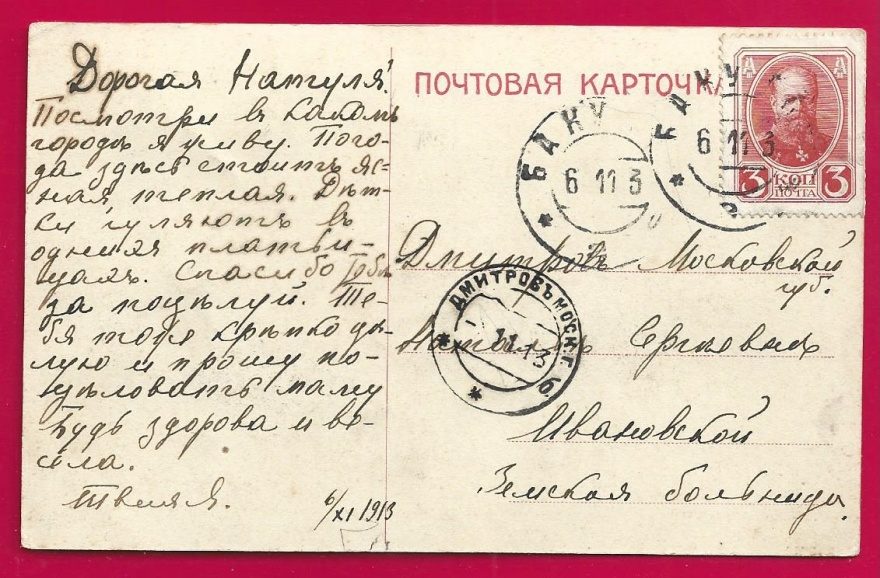 Дорогая Натуля!
Посмотри въ какомъ
городѣ я живу. Пого-
да здѣсь стоитъ яс-
ная теплая. Дѣт-
ки гуляютъ въ
однихъ платьи-
цахъ. Спасибо Тебѣ
за поцѣлуй. Те-
бя тоже крѣпко цѣ-
лую и прошу по-
цѣловать маму
Будь здорова и ве-
села.
Твоя Я.
6/XI 1913
ПОЧТОВАЯ КАРТОЧКА
БАКУ
6 11 3
БАКУ
6 11 3
3 КОП 3
ПОЧТА
Дмитровъ Московской
губ.
ДМИТРОВЪ МОСК. Г.
11 13
Сергеевнѣ
Ивановской
Земская больница